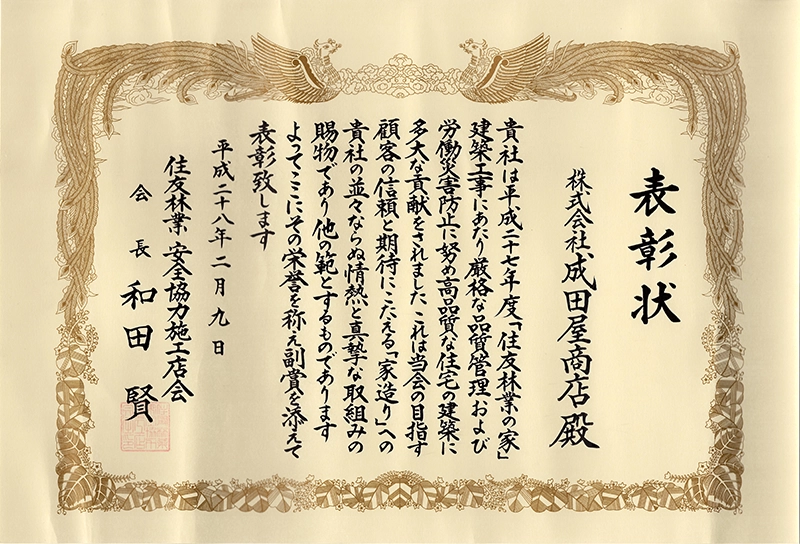 表彰状
株式会社成田屋商店殿
貴社は平成二十七年度「住友林業の家」
建築工事にあたり厳格な品質管理および
労働災害防止に努め高品質な住宅の建築に
多大な貢献をされました これは当会の目指す
顧客の信頼と期待にこたえる「家造り」への
貴社の並々ならぬ情熱と真摯な取組みの
賜物であり他の範とするものであります
よってここにその栄誉を称え副賞を添えて
表彰致します
平成二十八年二月九日
住友林業 安全協力施工店会
会長 和田 賢